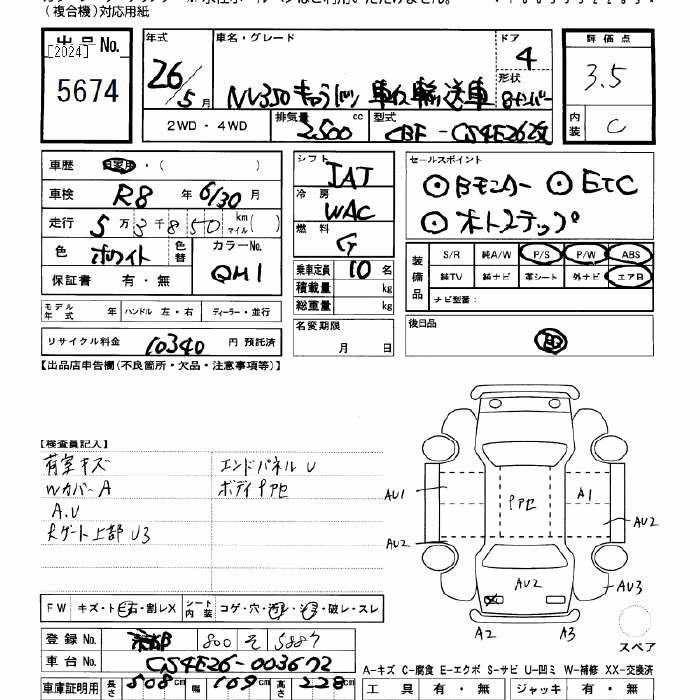 (複合機)対応用紙
出品No.
[2024]
5674
年式
26/5月
車名・グレード
NV350 キャラバン 車いす輸送車
ドア
4
形状
8ナンバー
2WD・4WD
排気量 2500 cc
型式 CBF-CS4E26改
評価点
3.5
内装 C
車歴 自家用・( )
車検 R8年 6/30月
走行 5万3千850 km マイル( )
色 ホワイト 色替 カラーNo. QM1
保証書 有・無
モデル年式 年 ハンドル 左・右 ディーラー・並行
リサイクル料金 10340 円 預託済
シフト IAT
冷房 WAC
燃料 G
乗車定員 10 名
積載量 kg
総重量 kg
名変期限
月 日
セールスポイント
⊙Bモニター ⊙ETC
⊙オートステップ
装備品
S/R 純A/W P/S P/W ABS
純TV 純ナビ 革シート 外ナビ エアB
ナビ型番:
後日品
【出品店申告欄(不良箇所・欠品・注意事項等)】
【検査員記入】
荷室キズ エンドパネルU
Wカバー A ボディサビ
A.U
大ゲート上部 U3
AU1
AU2
A1
AU2
AU3
AU2
A2
A3
スペア
FW キズ・ト石・割レX シート内装 コゲ・穴・汚レ・シミ・破レ・スレ
登録No. 800 そ
車台No. CS4E26-003672
車庫証明用 長さ 508cm 幅 169cm 高さ 228cm
A-キズ C-腐食 E-エクボ S-サビ U-凹ミ W-補修 XX-交換済
工具 有・無 ジャッキ 有・無